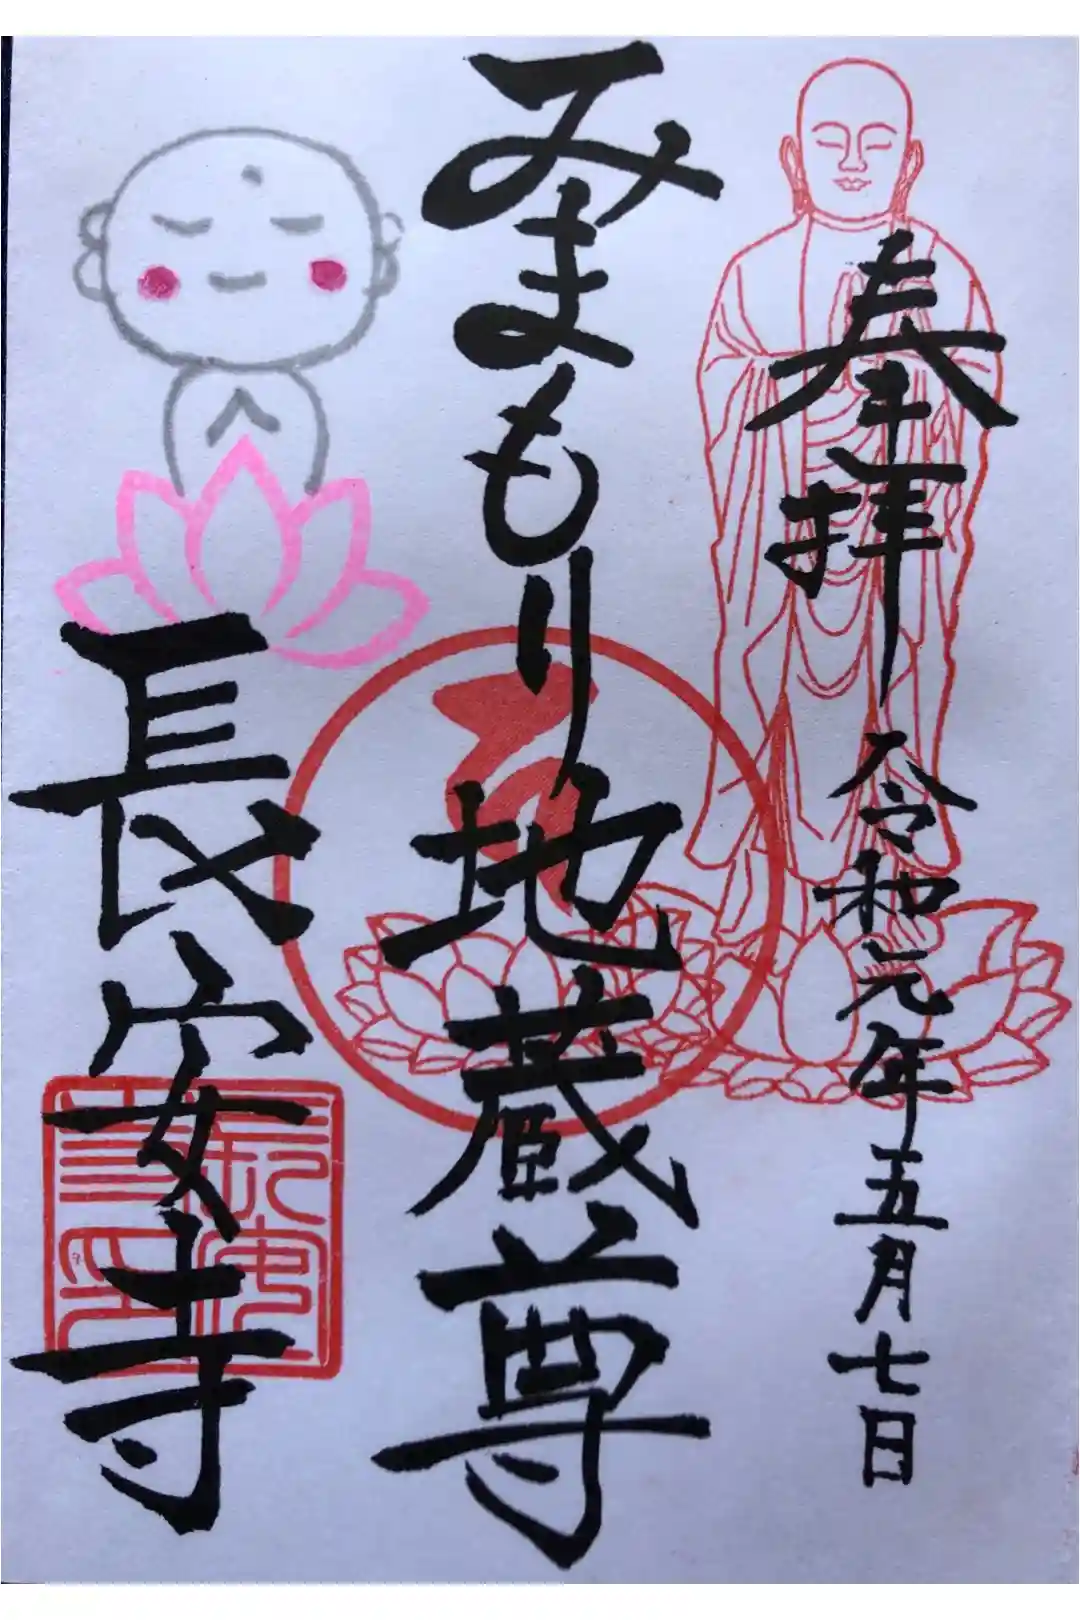 奉拝
令和元年五月七日
みまもり地蔵尊
長安寺